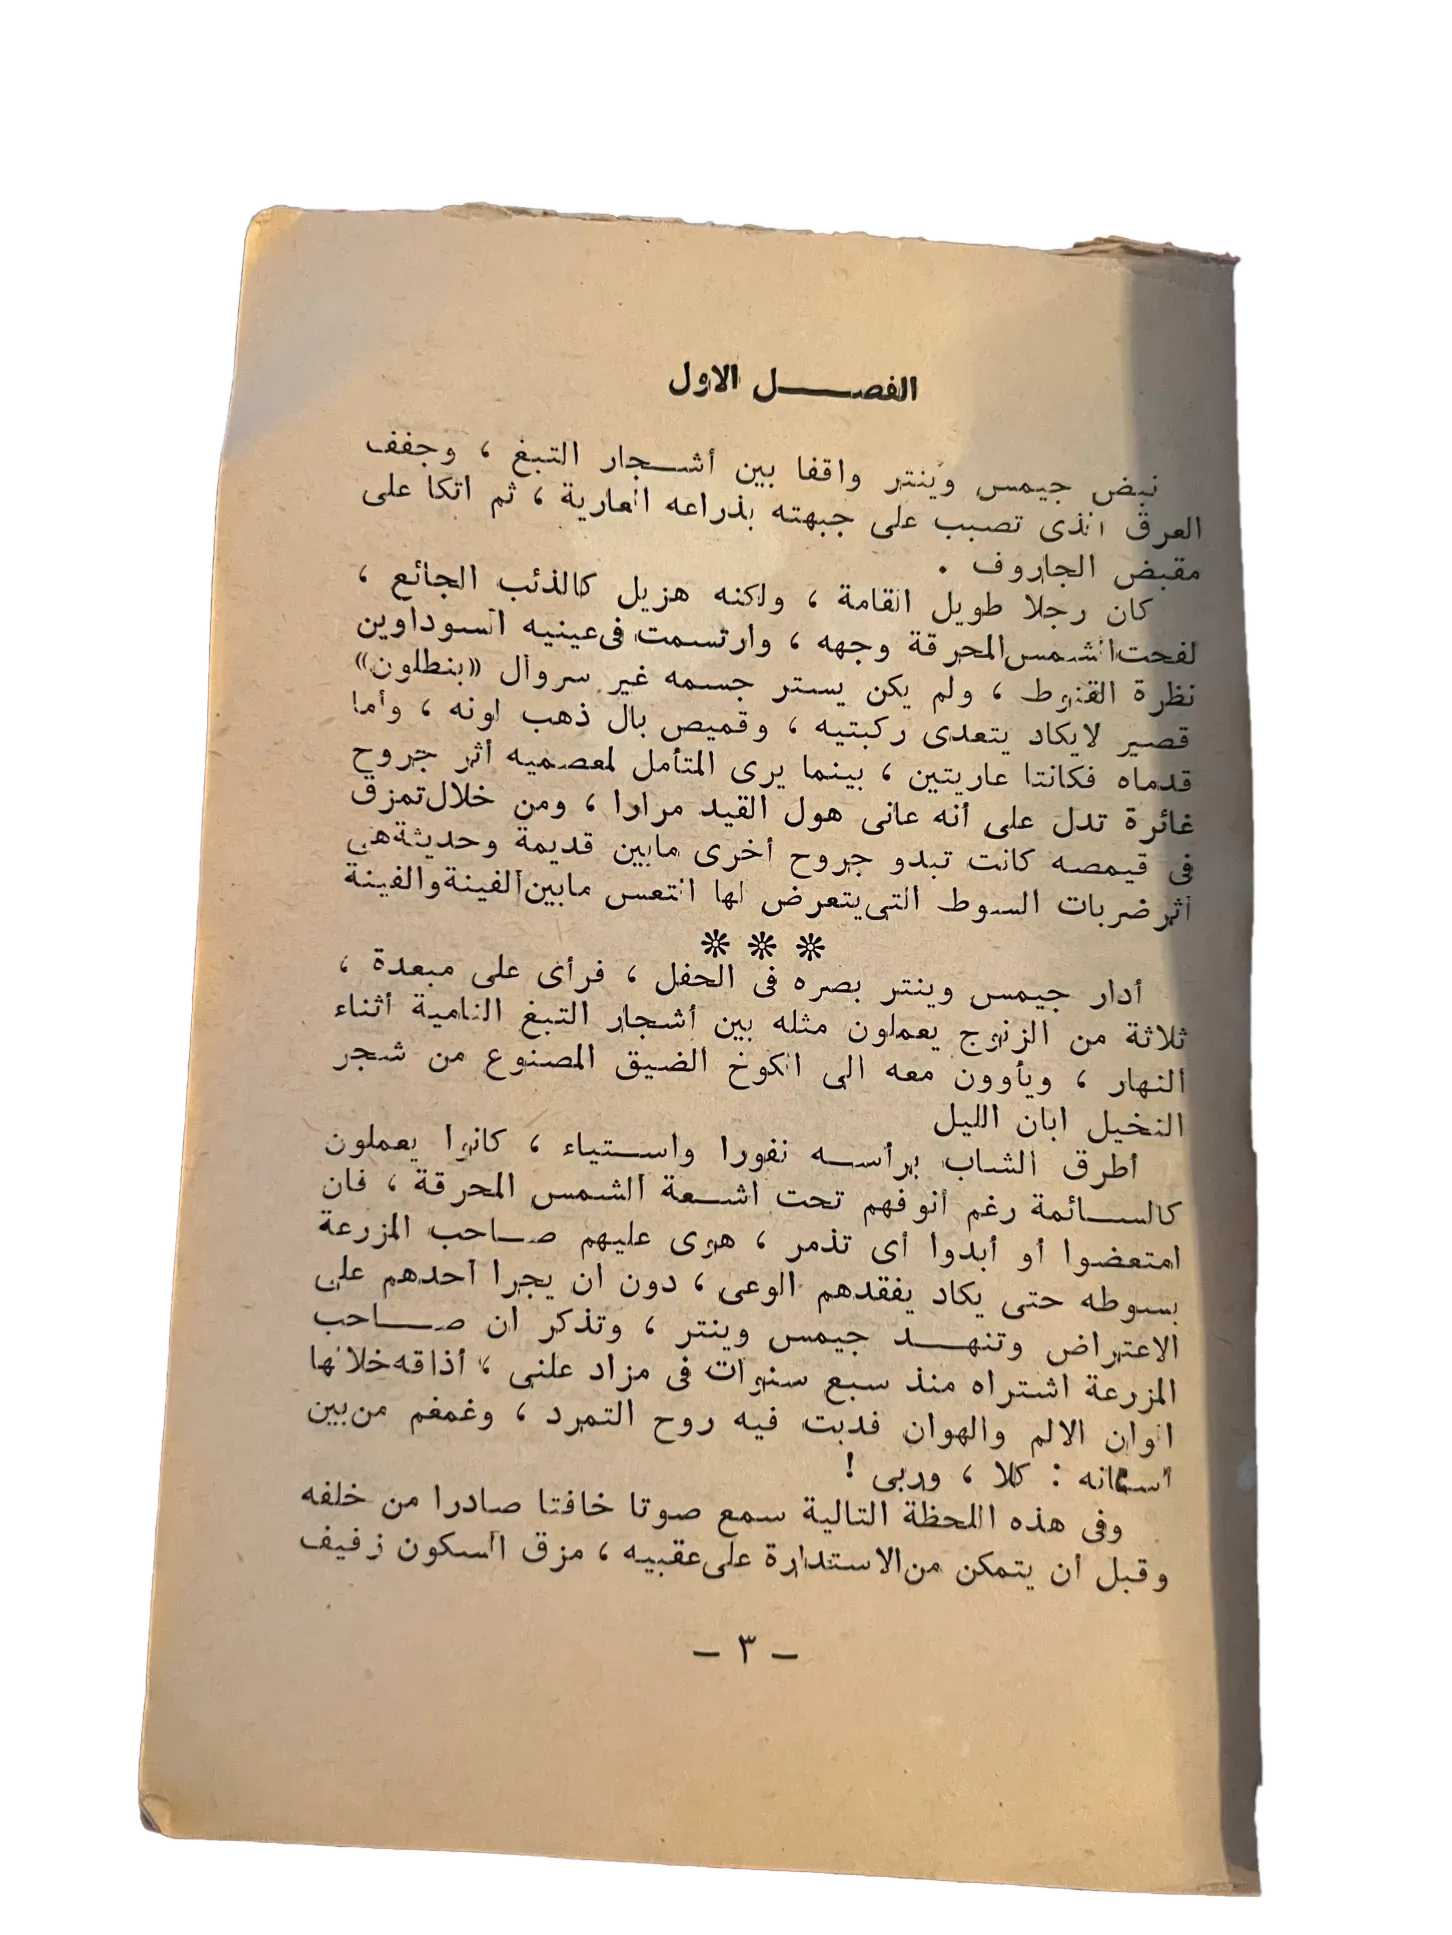 الفصــــل الاول
نبض جيمس وينتر واقفا بين أشــجار التبغ ، وجفف
العرق الذى تصبب على جبهته بذراعه العارية ، ثم اتكا على
مقبض الجاروف .
كان رجلا طويل القامة ، ولكنه هزيل كالذئب الجائع ،
لفحت الشمس المحرقة وجهه ، وارتسمت فى عينيه السوداوين
نظرة القنوط ، ولم يكن يستر جسمه غير سروال «بنطلون»
قصير لايكاد يتعدى ركبتيه ، وقميص بال ذهب لونه ، وأما
قدماه فكانتا عاريتين ، بينما يرى المتأمل لمعصميه أثر جروح
غائرة تدل على أنه عانى هول القيد مرارا ، ومن خلال تمزق
فى قيمصه كانت تبدو جروح أخرى مابين قديمة وحديثة هى
أثر ضربات السوط التى يتعرض لها التعس مابين الفينة والفينة
❊ ❊ ❊
أدار جيمس وينتر بصره فى الحفل ، فرأى على مبعدة ،
ثلاثة من الزنوج يعملون مثله بين أشجار التبغ النامية أثناء
النهار ، ويأوون معه الى الكوخ الضيق المصنوع من شجر
النخيل ابان الليل
أطرق الشاب برأســه نفورا واســتياء ، كانوا يعملون
كالســائمة رغم أنوفهم تحت اشــعة الشمس المحرقة ، فان
امتعضوا أو أبدوا أى تذمر ، هوى عليهم صــاحب المزرعة
بسوطه حتى يكاد يفقدهم الوعى ، دون ان يجرا أحدهم على
الاعتراض وتنهــد جيمس وينتر ، وتذكر ان صــاحب
المزرعة اشتراه منذ سبع سنوات فى مزاد علنى ، أذاقه خلالها
الوان الالم والهوان فدبت فيه روح التمرد ، وغمغم من بين
أسنانه : كلا ، وربى !
وفى هذه اللحظة التالية سمع صوتا خافتا صادرا من خلفه
وقبل أن يتمكن من الاستدارة على عقبيه ، مزق السكون زفيف
– ٣ –